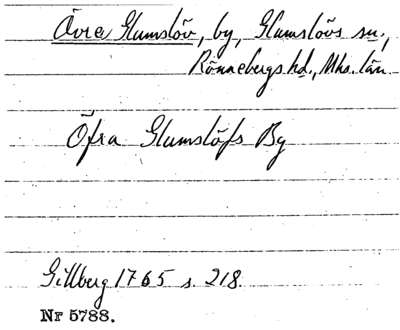 Övre Glumslöv, by, Glumslövs sn.,
Rönnebergs hd., Mhs. län.
Öfra Glumslöfs By
Gillberg 1765 s. 218.
Nr 5788.